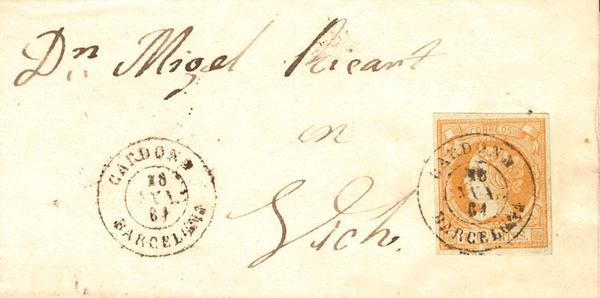 Dn Migel Ricart
en
Vich
CARDONA
18
JUL.
61
BARCELONA
CORREOS
CARDONA
18
JUL.
61
BARCELONA